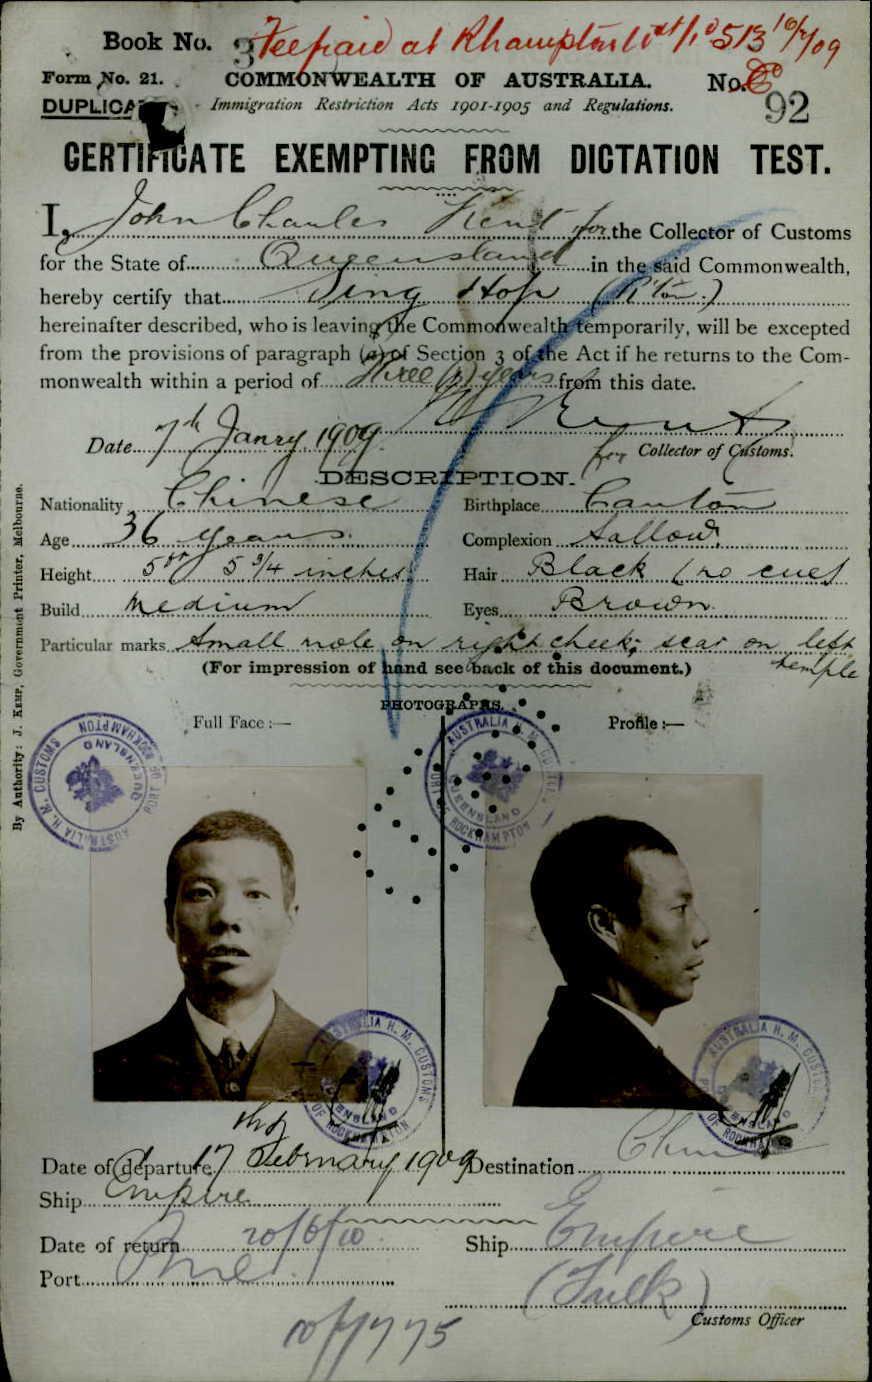 Book No. 3 Fee paid at Rhampton 10/2/09
Form No. 21. COMMONWEALTH OF AUSTRALIA. No. 92
DUPLICATE Immigration Restriction Acts 1901-1905 and Regulations.
CERTIFICATE EXEMPTING FROM DICTATION TEST.
I, John Charles Kent for the Collector of Customs
for the State of Queensland in the said Commonwealth,
hereby certify that Sing Hop (R'ton.)
hereinafter described, who is leaving the Commonwealth temporarily, will be excepted
from the provisions of paragraph (a) of Section 3 of the Act if he returns to the Com-
monwealth within a period of Three (3) years from this date.
Date 7th Janry, 1909
for Collector of Customs.
DESCRIPTION.
Nationality Chinese Birthplace Canton
Age 36 years. Complexion Sallow.
Height 5 ft 5 3/4 inches. Hair Black (no cue)
Build Medium Eyes Brown.
Particular marks Small mole on right cheek; scar on left temple
(For impression of hand see back of this document.)
PHOTOGRAPHS.
Full Face :— Profile :—
By Authority: J. KEMP, Government Printer, Melbourne.
AUSTRALIA H. M. CUSTOMS PORT OF ROCKHAMPTON QUEENSLAND
AUSTRALIA H. M. CUSTOMS PORT OF ROCKHAMPTON QUEENSLAND
AUSTRALIA H. M. CUSTOMS PORT OF ROCKHAMPTON QUEENSLAND
AUSTRALIA H. M. CUSTOMS PORT OF ROCKHAMPTON QUEENSLAND
Date of departure 17 February 1909 Destination China
Ship Empire
Date of return 20/6/10 Ship Empire
Port Bne
Customs Officer